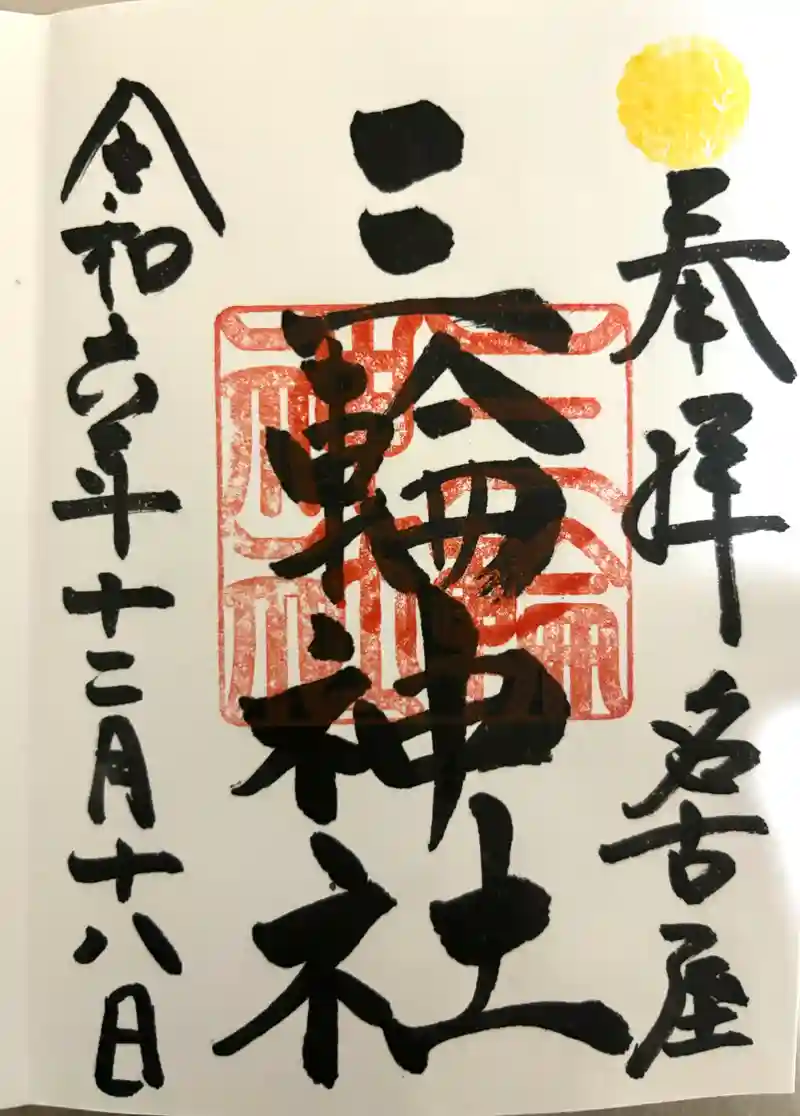 奉拝 名古屋
三輪神社
令和六年十二月十八日
三輪神社